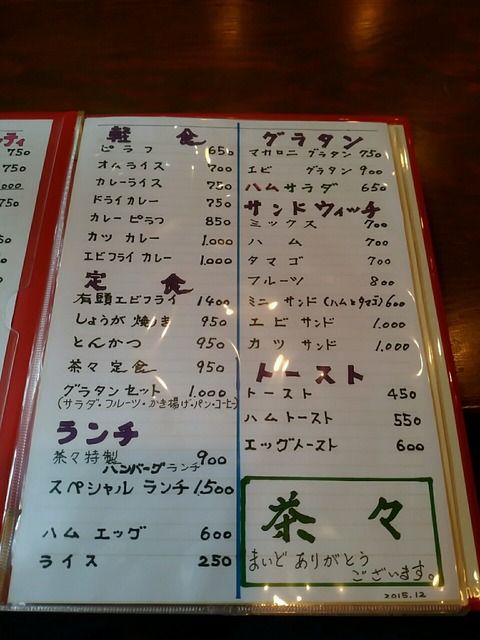 ティ
750
750
1000
750
軽食
ピラフ 650
オムライス 700
カレーライス 750
ドライカレー 750
カレーピラフ 850
カツ カレー 1.000
エビフライ カレー 1.000
定食
有頭エビフライ 1400
しょうが焼き 950
とんかつ 950
茶々定食 950
グラタンセット 1.000
(サラダ・フルーツ・かき揚げ・パン・コーヒ)
ランチ
茶々特製 900
ハンバーグランチ
スペシャル ランチ 1,500
ハム エッグ 600
ライス 250
グラタン
マカロニ グラタン 750
エビ グラタン 900
ハムサラダ 650
サンドウィッチ
ミックス 700
ハム 700
タマゴ 700
フルーツ 800
ミニ サンド(ハムとタマゴ) 600
エビ サンド 1.000
カツ サンド 1.000
トースト
トースト 450
ハムトースト 550
エッグトースト 600
茶々
まいど ありがとう
ございます。
2015.12